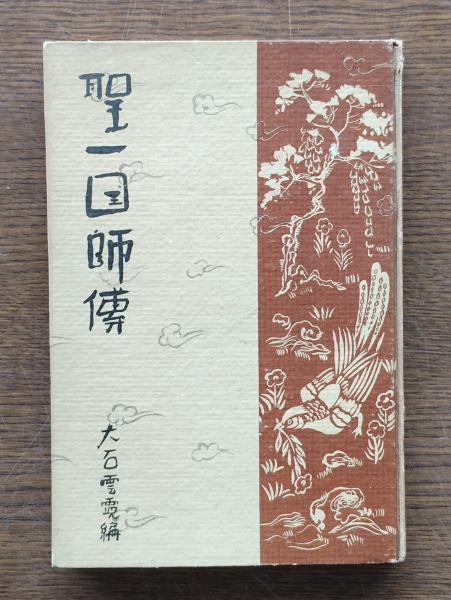 聖一国師傳
大石雲霓編